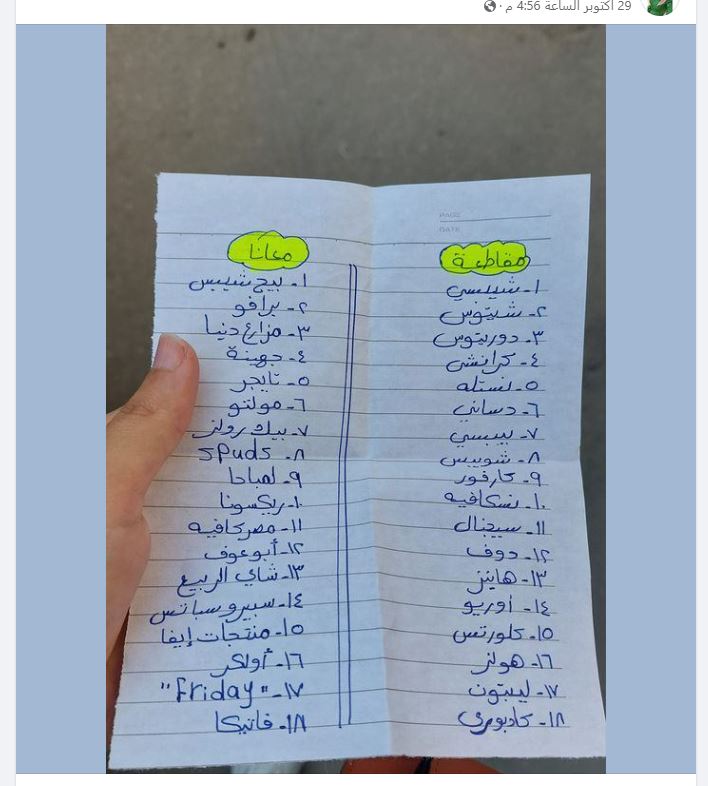 29 أكتوبر الساعة 4:56 م
PAGE
DATE
مقاطعة
١- شيبسي
٢- شيتوس
٣- دوريتوس
٤- كرانشي
٥- نستله
٦- دساني
٧- بيبسي
٨- شويبس
٩- كارفور
١٠- نسكافيه
١١- سيجنال
١٢- دوف
١٣- هاينز
١٤- أوريو
١٥- كلورتس
١٦- هولز
١٧- ليبتون
١٨- كادبوري
معانا
١- بيج شيبس
٢- برافو
٣- مزارع دنيا
٤- جهينة
٥- تايجر
٦- مولتو
٧- بيك رولز
٨- spuds
٩- لمبادا
١٠- ريكسونا
١١- مصر كافيه
١٢- أبو عوف
١٣- شاي الربيع
١٤- سبيرو سباتس
١٥- منتجات إيفا
١٦- أولكر
١٧- "Friday"
١٨- فاتيكا